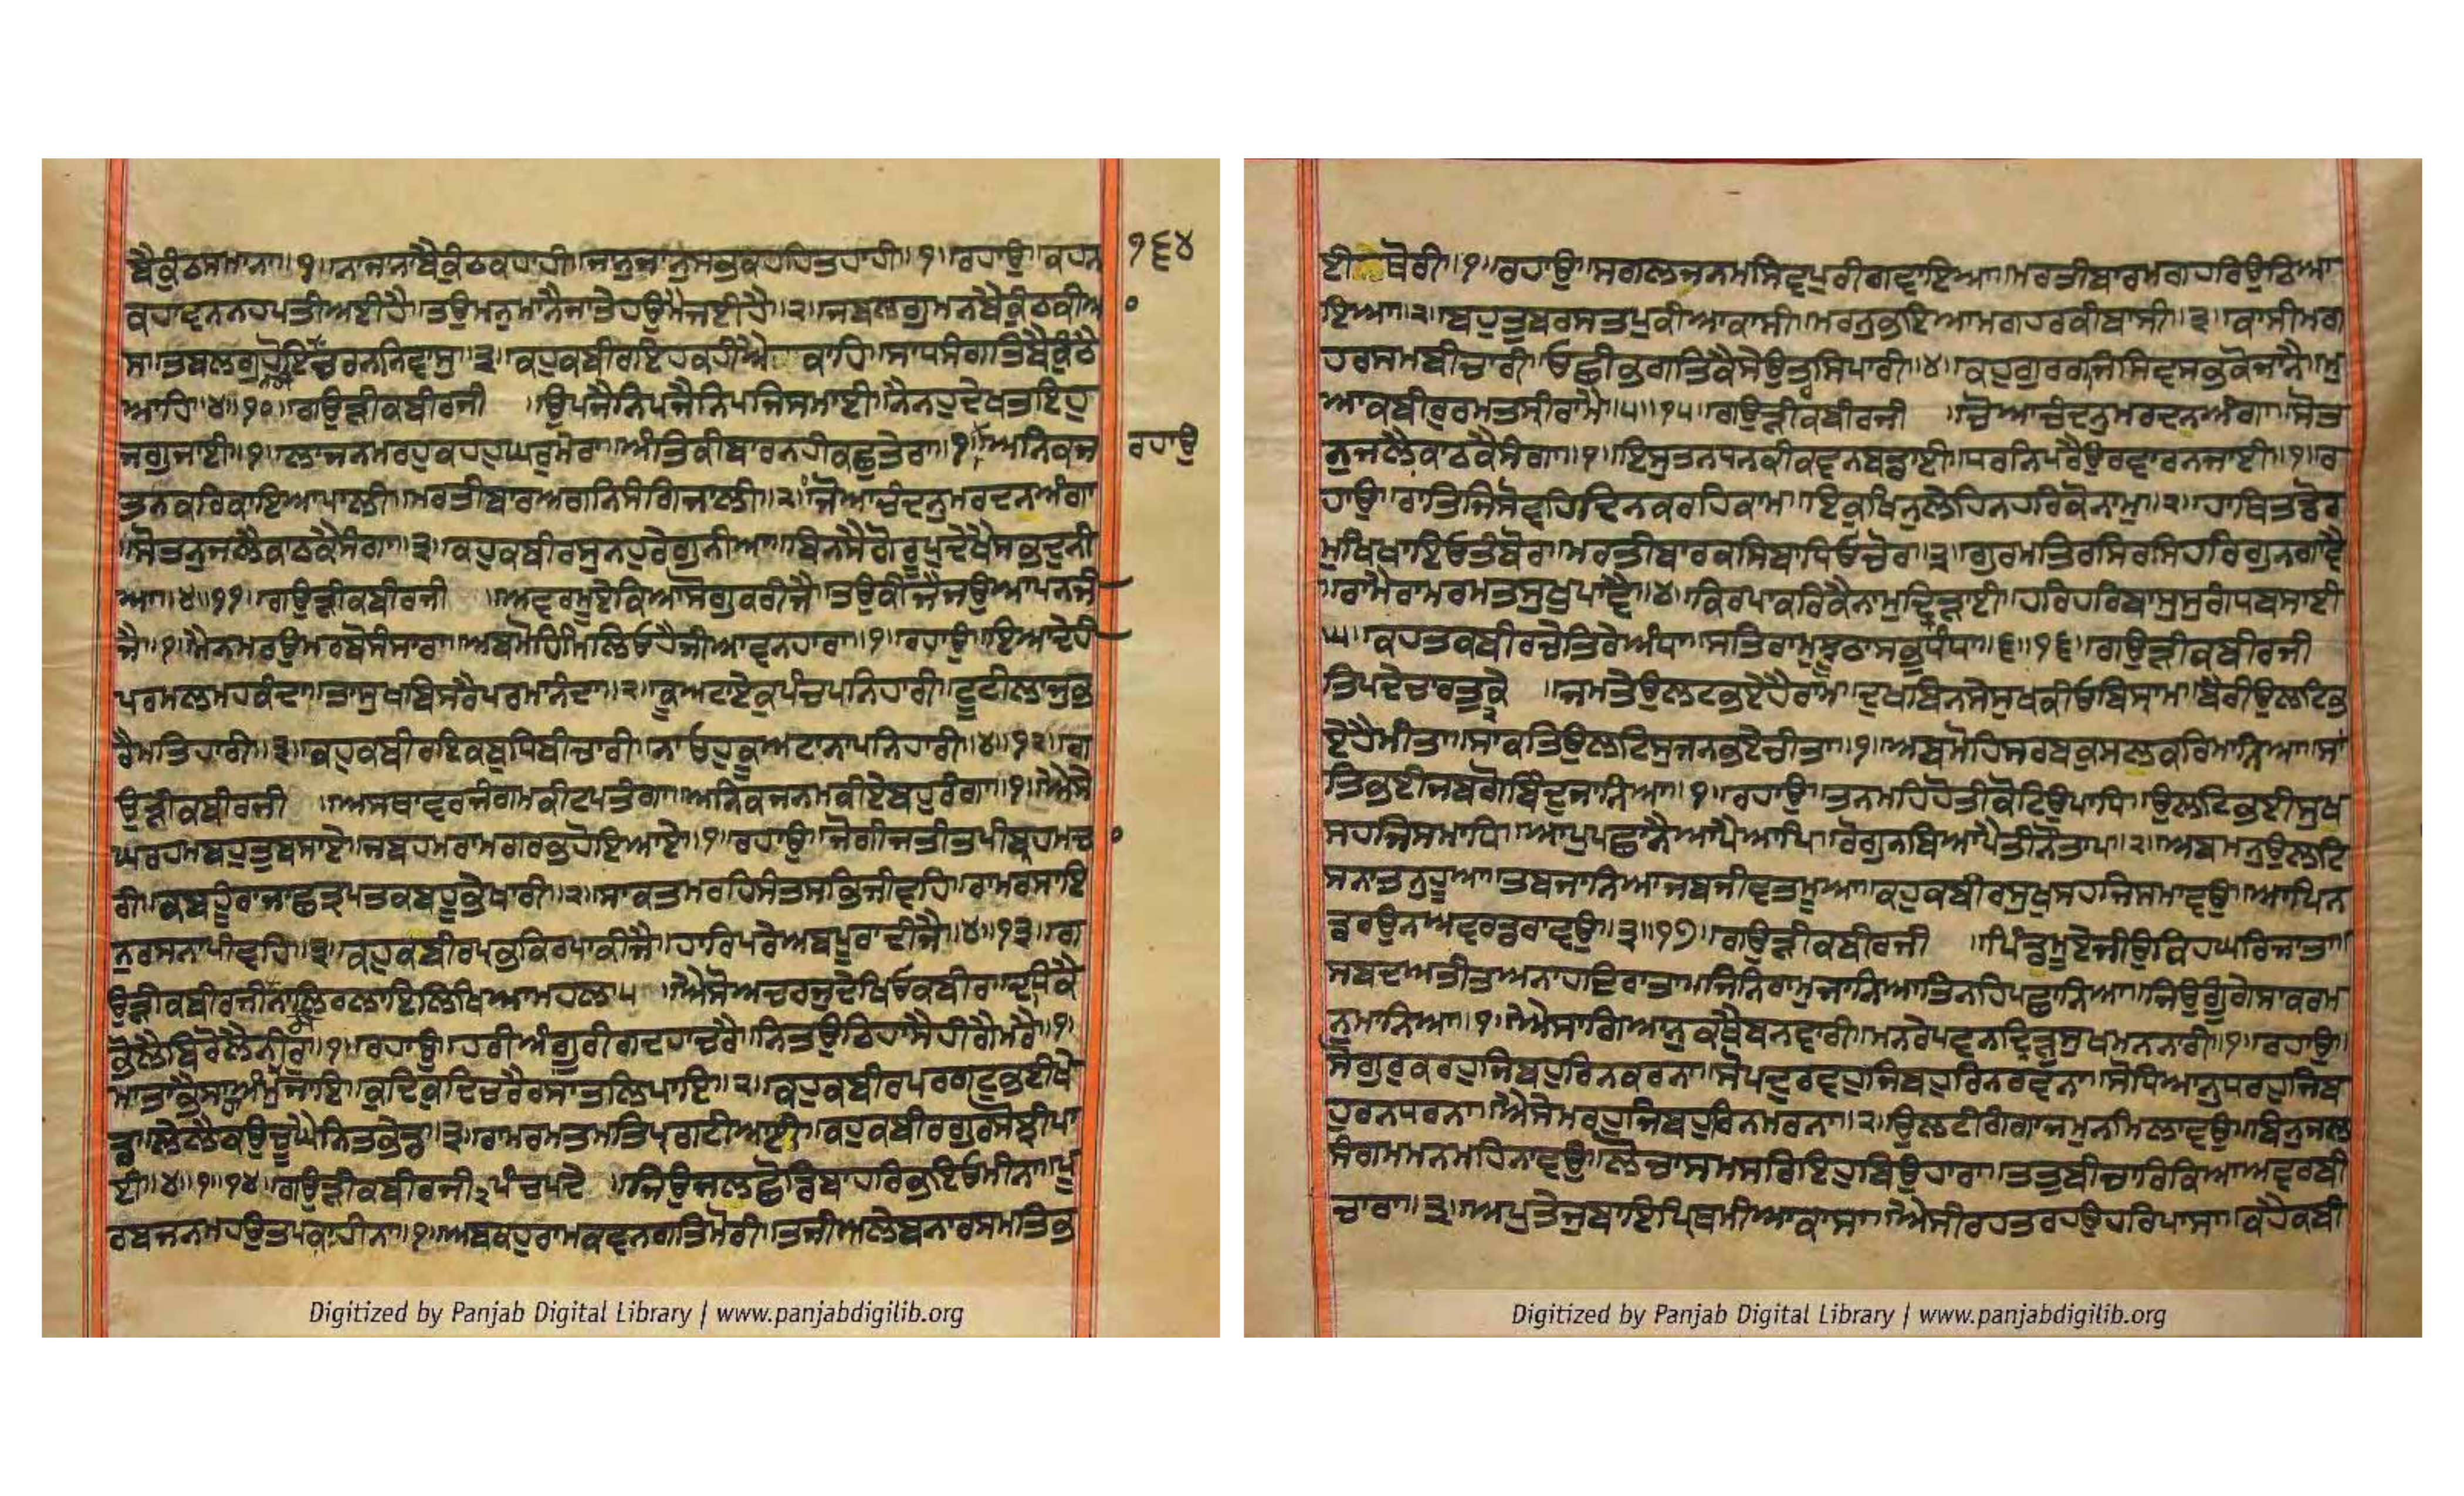 ਬੈਕੁੰਠਸਮਾਨਾ॥੧॥ਨਾਜਾਨਾਬੈਕੁੰਠਕਹਾਹੀ॥ਜਾਨੁਜਾਨੁਸਭਕਹਹਿਤਹਾਹੀ॥੧॥ਰਹਾਉ॥ਕਹਨ
੧੬੪
ਕਹਾਵਨਨਹਪਤੀਅਈਹੈ॥ਤਉਮਨੁਮਾਨੈਜਾਤੇਹਉਮੈਜਈਹੈ॥੨॥ਜਬਲਗੁਮਨਬੈਕੁੰਠਕੀਆ
ਸਾ॥ਤਬਲਗੁਹੋਇਚਰਨਨਿਵਾਸੁ॥੩॥ਕਹੁਕਬੀਰਇਹਕਹੀਐ ਕਾਹਿ॥ਸਾਧਸੰਗਤਿਬੈਕੁੰਠੈ
ਆਹਿ॥੪॥੧੦॥ਗਉੜੀਕਬੀਰਜੀ ॥ਉਪਜੈਨਿਪਜੈਨਿਪਜਿਸਮਾਈ॥ਨੈਨਹੁਦੇਖਤਇਹੁ
ਜਗੁਜਾਈ॥੧॥ਲਾਜਨਮਰਹੁਕਹਹੁਘਰੁਮੇਰਾ॥ਅੰਤਿਕੀਬਾਰਨਹੀਕਛੁਤੇਰਾ॥੧॥ਅਨਿਕਜ
ਰਹਾਉ
ਤਨਕਰਿਕਾਇਆਪਾਲੀ॥ਮਰਤੀਬਾਰਅਗਨਿਸੰਗਿਜਾਲੀ॥੨॥ਚੋਆਚੰਦਨੁਮਰਦਨਅੰਗਾ
॥ਸੋਤਨੁਜਲੈਕਾਠਕੈਸੰਗਾ॥੩॥ਕਹੁਕਬੀਰਸੁਨਹੁਰੇਗੁਨੀਆ॥ਬਿਨਸੈਗੋਰੂਪੁਦੇਖੈਸਭਦੁਨੀ
ਆ॥੪॥੧੧॥ਗਉੜੀਕਬੀਰਜੀ ॥ਅਵਰਮੂਏਕਿਆਸੋਗੁਕਰੀਜੈ॥ਤਉਕੀਜੈਜਉਆਪਨਜੀ
ਜੈ॥੧॥ਮੈਨਮਰਉਮਰਬੋਸੰਸਾਰਾ॥ਅਬਮੋਹਿਮਿਲਿਓਹੈਜੀਆਵਨਹਾਰਾ॥੧॥ਰਹਾਉ॥ਇਆਦੇਹੀ
ਪਰਮਲਮਹਕੰਦਾ॥ਤਾਸੁਖਬਿਸਰੇਪਰਮਾਨੰਦਾ॥੨॥ਕੂਅਟਾਏਕੁਪੰਚਪਨਿਹਾਰੀ॥ਟੂਟੀਲਾਜੁਭ
ਰੈਮਤਿਹਾਰੀ॥੩॥ਕਹੁਕਬੀਰਇਕਬੁਧਿਬੀਚਾਰੀ॥ਨਾਓਹੁਕੂਅਟਾਨਾਪਨਿਹਾਰੀ॥੪॥੧੨॥ਗ
ਉੜੀਕਬੀਰਜੀ ॥ਅਸਥਾਵਰਜੰਗਮਕੀਟਪਤੰਗਾ॥ਅਨਿਕਜਨਮਕੀਏਬਹੁਰੰਗਾ॥੧॥ਐਸੇ
ਘਰਹਮਬਹੁਤੁਬਸਾਏ॥ਜਬਹਮਰਾਮਗਰਭਹੋਇਆਏ॥੧॥ਰਹਾਉ॥ਜੋਗੀਜਤੀਤਪੀਬ੍ਰਹਮਚਾ
ਰੀ॥ਕਬਹੂਰਾਜਾਛਤ੍ਰਪਤਕਬਹੂਭੇਖਾਰੀ॥੨॥ਸਾਕਤਮਰਹਿਸੰਤਸਭਿਜੀਵਹਿ॥ਰਾਮਰਸਾਇ
ਨੁਰਸਨਾਪੀਵਹਿ॥੩॥ਕਹੁਕਬੀਰਪ੍ਰਭਕਿਰਪਾਕੀਜੈ॥ਹਾਰਿਪਰੇਅਬਪੂਰਾਦੀਜੈ॥੪॥੧੩॥ਗ
ਉੜੀਕਬੀਰਜੀਨਾਲਿਰਲਾਇਲਿਖਿਆਮਹਲਾ੫ ॥ਐਸੋਅਚਰਜੁਦੇਖਿਓਕਬੀਰ॥ਦਧਿਕੈ
ਭੋਲੈਬਿਰੋਲੈਨੀਰੁ॥੧॥ਰਹਾਉ॥ਹਰੀਅੰਗੂਰੀਗਦਹਾਚਰੈ॥ਨਿਤਉਠਿਹਾਸੈਹੀਗੈਮਰੈ॥੧॥
ਮਾਤਾਭੈਸਾਅੰਮੁਹਾਜਾਇ॥ਕੁਦਿਕੁਦਿਚਰੈਰਸਾਤਲਿਪਾਇ॥੨॥ਕਹੁਕਬੀਰਪਰਗਟੁਭਈਖੇ
ਡ॥ਲੇਲੇਕਉਚੂਘੈਨਿਤਭੇਡ॥੩॥ਰਾਮਰਮਤਮਤਿਪ੍ਰਗਟੀਆਈ॥ਕਹੁਕਬੀਰਗੁਰਸੋਝੀਪਾ
ਈ॥੪॥੧॥੧੪॥ਗਉੜੀਕਬੀਰਜੀ੨ਪੰਚਪਦੇ ॥ਜਿਉਜਲਛੋਡਿਬਾਹਰਿਭਇਓਮੀਨਾ॥ਪੂ
ਰਬਜਨਮਹਉਤਪਕਾਹੀਨਾ॥੧॥ਅਬਕਹੁਰਾਮਕਵਨਗਤਿਮੋਰੀ॥ਤਜੀਅਲੇਬਨਾਰਸਮਤਿਭ
ਈਥੋਰੀ॥੧॥ਰਹਾਉ॥ਸਗਲਜਨਮਸਿਵਪੁਰੀਗਵਾਇਆ॥ਮਰਤੀਬਾਰਮਗਹਰਿਉਠਿਆ
ਇਆ॥੨॥ਬਹੁਤੁਬਰਸਤਪੁਕੀਆਕਾਸੀ॥ਮਰਨੁਭਇਆਮਗਹਰਕੀਬਾਸੀ॥੩॥ਕਾਸੀਮਗ
ਹਰਸਮਬੀਚਾਰੀ॥ਓਛੀਭਗਤਿਕੈਸੇਉਤਰਸਿਪਾਰੀ॥੪॥ਕਹੁਗੁਰਗਜਿਸਿਵਸਭਕੋਜਾਨੈ॥ਮੁ
ਆਕਬੀਰੁਰਮਤਸ੍ਰੀਰਾਮੈ॥੫॥੧੫॥ਗਉੜੀਕਬੀਰਜੀ ॥ਚੋਆਚੰਦਨੁਮਰਦਨਅੰਗਾ॥ਸੋਤ
ਨੁਜਲੈਕਾਠਕੈਸੰਗਾ॥੧॥ਇਸੁਤਨਧਨਕੀਕਵਨਬਡਾਈ॥ਧਰਨਿਪਰੈਉਰਵਾਰਨਜਾਈ॥੧॥ਰ
ਹਾਉ॥ਰਾਤਿਜਿਸੋਵਹਿਦਿਨਕਰਹਿਕਾਮ॥ਇਕੁਖਿਨੁਲੇਹਿਨਹਰਿਕੋਨਾਮੁ॥੨॥ਹਾਥਿਤਡੋਰ
ਮੁਖਿਖਾਇਓਤੰਬੋਰ॥ਮਰਤੀਬਾਰਕਸਿਬਾਧਿਓਚੋਰ॥੩॥ਗੁਰਮਤਿਰਸਿਰਸਿਹਰਿਗੁਨਗਾਵੈ
॥ਰਾਮੈਰਾਮਰਮਤਸੁਖੁਪਾਵੈ॥੪॥ਕਿਰਪਾਕਰਿਕੈਨਾਮੁਦ੍ਰਿੜਾਈ॥ਹਰਿਹਰਿਬਾਸੁਸੁਗੰਧਬਸਾਈ
॥੫॥ਕਹਤਕਬੀਰਚੇਤਿਰੇਅੰਧਾ॥ਸਤਿਰਾਮੁਝੂਠਾਸਭੁਧੰਧਾ॥੬॥੧੬॥ਗਉੜੀਕਬੀਰਜੀ
ਤਿਪਦੇਚਾਰਤੁਕੇ੨ ॥ਜਮਤੇਉਲਟਭਏਹੈਰਾਮ॥ਦੁਖਬਿਨਸੇਸੁਖਕੀਓਬਿਸਰਾਮ॥ਬੈਰੀਉਲਟਿਭ
ਏਹੈਮੀਤਾ॥ਸਾਕਤਿਉਲਟਿਸੁਜਨਭਏਚੀਤਾ॥੧॥ਅਬਮੋਹਿਸਰਬਕੁਸਲਕਰਿਮਾਨਿਆ॥ਸਾਂ
ਤਿਭਈਜਬਗੋਬਿੰਦੁਜਾਨਿਆ॥੧॥ਰਹਾਉ॥ਤਨਮਹਿਹੋਤੀਕੋਟਿਉਪਾਧਿ॥ਉਲਟਿਭਈਸੁਖ
ਸਹਜਿਸਮਾਧਿ॥ਆਪੁਪਛਾਨੈਆਪੈਆਪਿ॥ਰੋਗੁਨਬਿਆਪੈਤੀਨੋਤਾਪ॥੨॥ਅਬਮਨੁਉਲਟਿ
ਸਨਾਤਨੁਹੂਆ॥ਤਬਜਾਨਿਆਜਬਜੀਵਤਮੂਆ॥ਕਹੁਕਬੀਰਸੁਖੁਸਹਜਿਸਮਾਵਉ॥ਆਪਿਨ
ਡਰਉਨਾਅਵਰਡਰਾਵਉ॥੩॥੧੭॥ਗਉੜੀਕਬੀਰਜੀ ॥ਪਿੰਡਮੂਏਜੀਉਕਿਹਘਰਿਜਾਤਾ॥
ਸਬਦਅਤੀਤਅਨਾਹਦਿਰਾਤਾ॥ਜਿਨਿਰਾਮੁਜਾਨਿਆਤਿਨਹਿਪਛਾਨਿਆ॥ਜਿਉਗੂੰਗੇਸਾਕਰਮ
ਨੁਮਾਨਿਆ॥੧॥ਐਸਾਗਿਆਨੁਕਥੈਬਨਵਾਰੀ॥ਮਨਰੇਪਵਨਦ੍ਰਿੜਸੁਖਮਨਨਾਰੀ॥੧॥ਰਹਾਉ॥
ਸੋਗੁਰੁਕਰਹੁਜਿਬਹੁਰਿਨਕਰਨਾ॥ਸੋਪਦੁਰਵਹੁਜਿਬਹੁਰਿਨਰਵਨਾ॥ਸੋਧਿਆਨੁਧਰਹੁਜਿਬ
ਹੁਰਨਧਰਨਾ॥ਐਸੇਮਰਹੁਜਿਬਹੁਰਿਨਮਰਨਾ॥੨॥ਉਲਟੀਗੰਗਾਜਮੁਨਮਿਲਾਵਉ॥ਬਿਨੁਜਲ
ਸੰਗਮਮਨਮਹਿਨਾਵਉ॥ਲੋਚਾਸਮਸਰਿਇਹੁਬਿਉਹਾਰਾ॥ਤਤੁਬੀਚਾਰਿਕਿਆਅਵਰਬੀ
ਚਾਰਾ॥੩॥ਅਪੁਤੇਜੁਬਾਇਪ੍ਰਿਥਮੀਆਕਾਸਾ॥ਐਸੀਰਹਤਰਹਉਹਰਿਪਾਸਾ॥ਕਹੈਕਬੀ
Digitized by Panjab Digital Library | www.panjabdigilib.org
Digitized by Panjab Digital Library | www.panjabdigilib.org